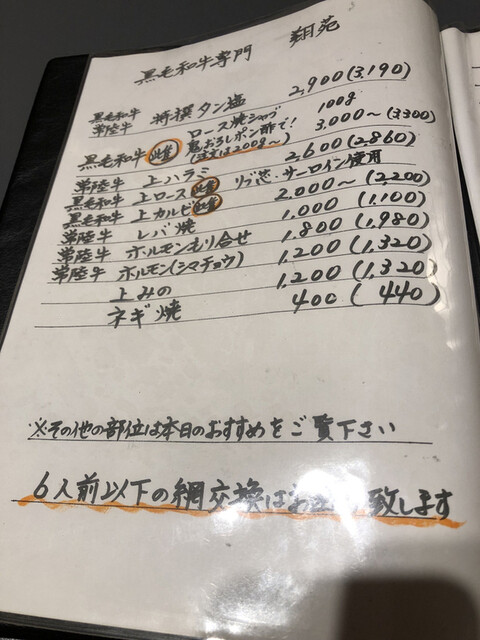 黒毛和牛専門 翔苑
黒毛和牛
常陸牛 特撰タン塩 2,900(3,190)
ロース焼シャブ 100g
黒毛和牛 雌 鬼おろしポン酢で! 3,000〜(3300)
(注文は200g〜)
常陸牛 上ハラミ 2,600(2,860)
黒毛和牛 上ロース 雌 リブ芯・サーロイン使用
黒毛和牛 上カルビ 雌 2,000〜(2,200)
常陸牛 レバ焼 1,000 (1,100)
常陸牛 ホルモンもり合せ 1,800 (1,980)
常陸牛 ホルモン(シマチョウ) 1,200 (1,320)
上みの 1,200 (1,320)
ネギ焼 400 (440)
※その他の部位は本日のおすすめをご覧下さい
6人前以下の網交換はお 致します